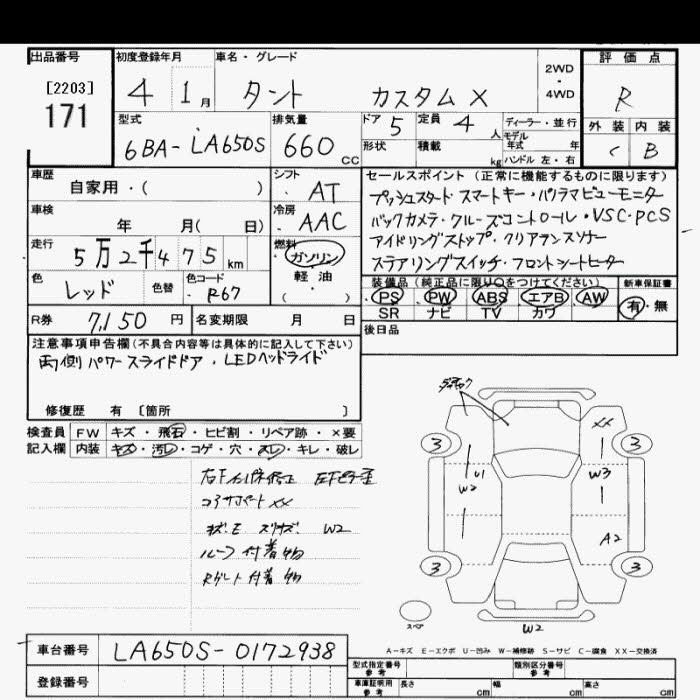 出品番号
[2203]
171
初度登録年月
4 1月
車名・グレード
タント カスタムX
2WD
・
4WD
評価点
R
外装 内装
C B
型式
6BA-LA650S
排気量
660 CC
ドア 5
定員 4 人
形状
積載 kg
ディーラー・並行
モデル
年式 年
ハンドル 左・右
車歴
自家用・( )
シフト
AT
車検
年 月( 日)
冷房
AAC
走行
5万2千475km
燃料
ガソリン
軽・油
( )
色
レッド
色替
色コード
R67
セールスポイント(正常に機能するものに限ります)
プッシュスタート スマートキー・パノラマビューモニター
バックカメラ・クルーズコントロール・VSC・PCS
アイドリングストップ・クリアランスソナー
ステアリングスイッチ・フロントシートヒーター
装備品(純正品に限り○をつけてください)
PS PW ABS エアB AW
SR ナビ TV カワ
新車保証書
有・無
R券
7,150 円
名変期限 月 日
後日品
注意事項申告欄(不具合内容等は具体的に記入して下さい)
両側パワースライドドア・LEDヘッドライト
修復歴 有 [箇所 ]
検査員
記入欄
FW キズ・飛石・ヒビ割・リペア跡・×要
内装 キズ・汚レ・コゲ・穴・スレ・キレ・破レ
コアサポート XX
W2
ルーフ 付着物
付着物
3
3
3
3
XX
U1
W2
W3
A2
W2
スペア
A-キズ E-エクボ U-凹み W-補修跡 S-サビ C-腐食 XX-交換済
車台番号
LA650S-0172938
登録番号
型式指定番号
参考
類別区分番号
参考
車庫証明用
参考
長さ cm
幅 cm
高さ cm